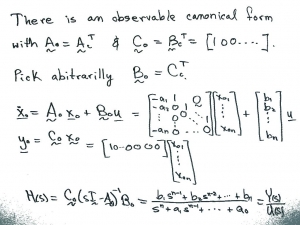 There is an observable canonical form
with A₀ = A_c^T & C₀ = B_c^T = [1 0 0 ....].
Pick abitrarilly B₀ = C_c^T
ẋ₀ = A₀ x₀ + B₀ u = [-a₁ 1 0; -a₂ 0 1 0; ⋮ 0 ⋱ 1; -aₙ 0 ... 0] [x₀₁; ⋮; x₀ₙ] + [b₁; b₂; ⋮; bₙ] u
y₀ = C₀ x₀ = [1 0 ... 0 0 0 0] [x₀₁; ⋮; x₀ₙ]
H(s) = C₀ (sI - A₀)⁻¹ B₀ = (b₁ sⁿ⁻¹ + b₂ sⁿ⁻² + ... + bₙ) / (sⁿ + a₁ sⁿ⁻¹ + ... + a₀) = Y(s)/U(s)